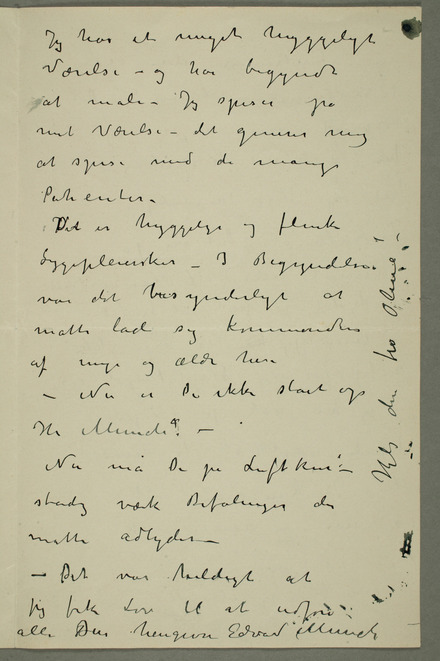 Jeg har et meget hyggeligt
Værelse – og har begyndt
at male – Jeg spiser på
mit Værelse – det generer mig
at spise med de mange
Patienter –
Det er hyggelige og flinke
Sygeplejersker – I Begyndelsen
var det besynderligt at
måtte lade sig kommandere
af unge og ældre
– Nu er De ikke stået op
Hr Munch! –
Nu må De på Luftkur! –
stadig Befalinger der
måtte adlydes –
– Det var heldigt at
jeg fik Lov til at
alle Din hengivne Edvard Munch
Hils din fra